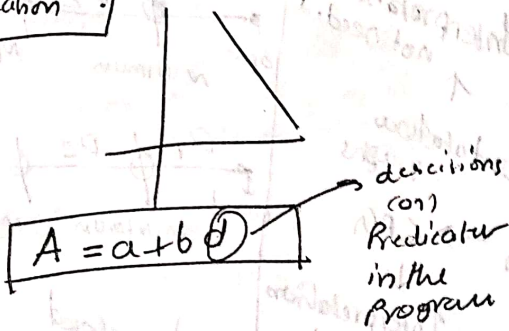 ation .
A = a + b d
descitions
(or)
Predicates
in the
Program